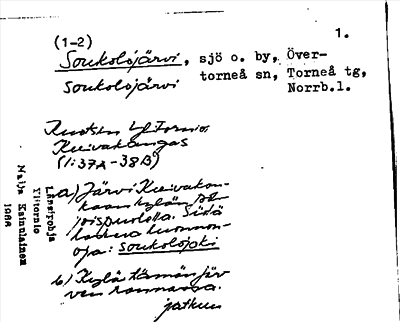 1.
(1-2)
Soukolojärvi, sjö o. by, Över-
soukolojärvi torneå sn, Torneå tg,
Norrb.l.
Ruotsin Ylitornio,
Kuivakangas
(1:37A-38B)
a) Järvi Kuivakan-
kaan kylän poh-
joispuolella. Siitä
laskeva luonnon-
oja: Soukolojoki
b) Kylä tämän jär-
ven rannassa.
jatkuu
Länsipohja
Ylitornio
Maija Kainulainen
1966